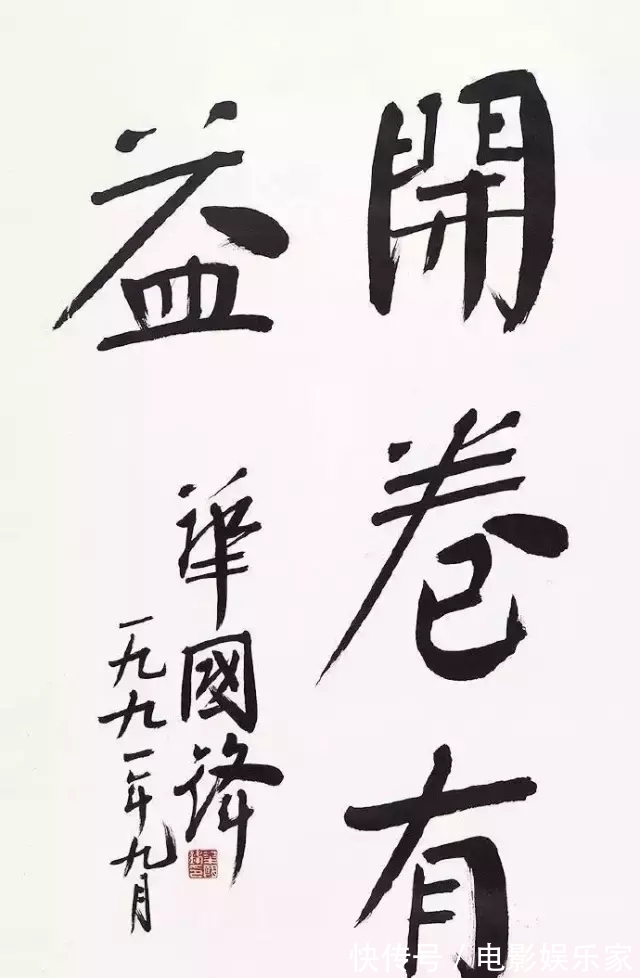 開卷有
益
華國鋒
一九九一年九月
快传号/电影娱乐家